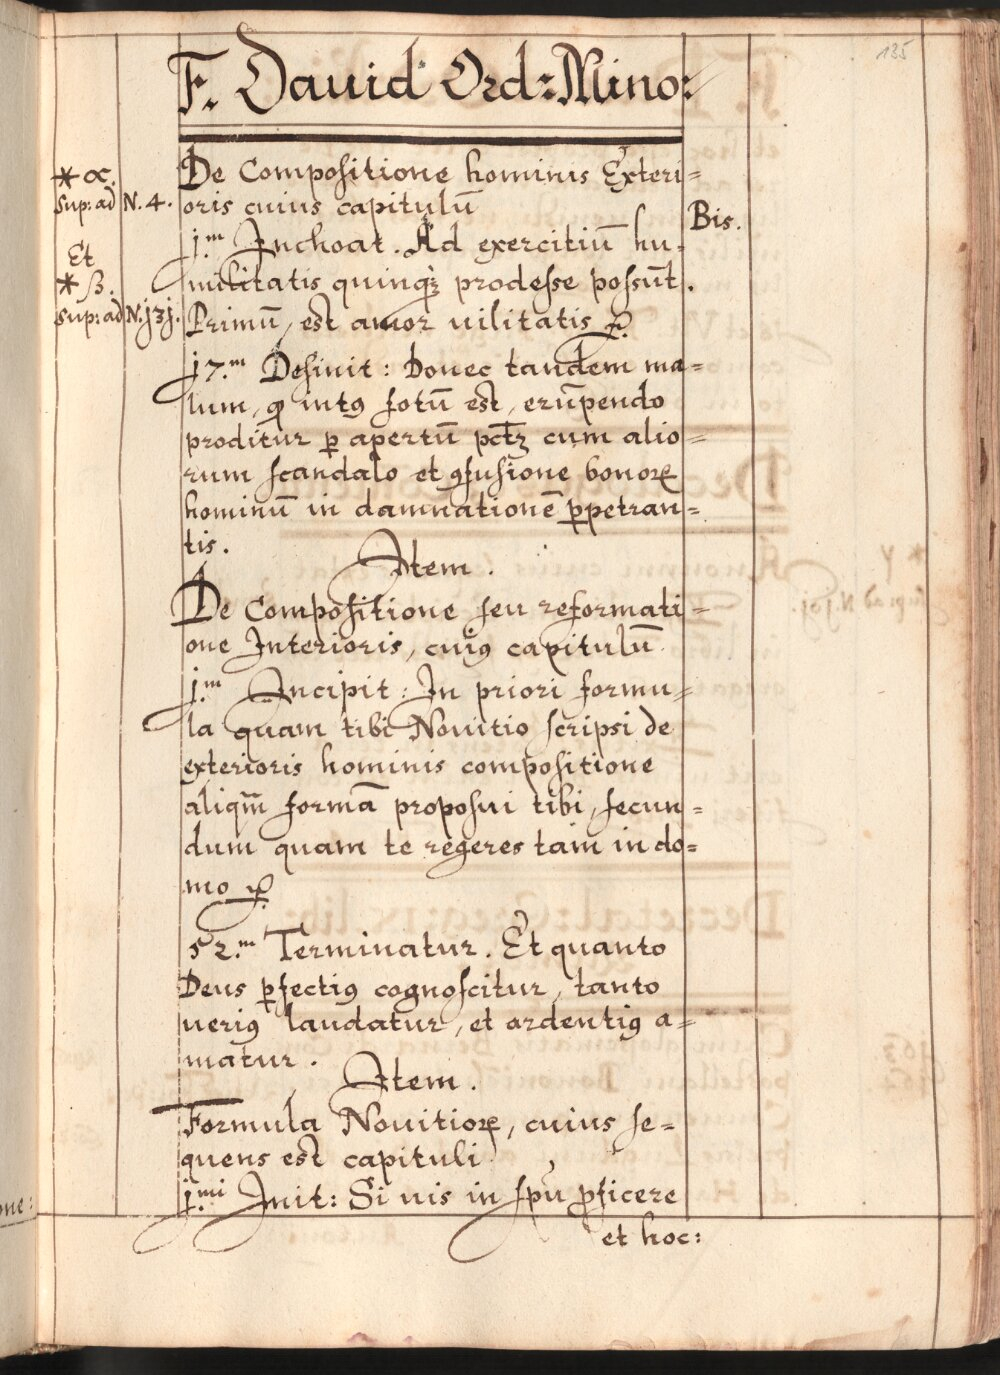 135
F. Dauid Ord: Mino:
De Compositione hominis Exteri=
oris cuius capitulū
Bis.
* α.
sup: ad N. 4.
Et
* β.
sup: ad N. j3j.
j.m Inchoat. Ad exercitiū hu-
militatis quinqȝ prodesse possūt.
Primū, est amor uilitatis
j7.m Desinit: Donec tandem ma=
lum, intꝯ fotū est, erūpendo
proditur ꝑ apertū pctȝ cum alio=
rum scandalo et ꝯfusione bonoꝝ
hominū in damnationē ꝑpetran=
tis.
Item.
De Compositione seu reformati=
one Interioris, cuiꝯ capitulū
j.m Incipit: In priori formu=
la quam tibi Nouitio scripsi de
exterioris hominis compositione
aliqm̄ formā proposui tibi, secun=
dum quam te regeres tam in do=
mo
52.m Terminatur. Et quanto
Deus ꝑfectiꝯ cognoscitur, tanto
ueriꝯ laudatur, et ardentiꝯ a=
matur.
Item.
Formula Nouitioꝝ, cuius se=
quens est capituli
j.mi Init: Si uis in spū ꝓficere
et hoc:
one: